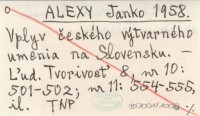 ALEXY Janko 1958.
Vplyv českého výtvarného
umenia na Slovensku. –
Ľud. Tvorivosť 8, nr 10:
501-502; nr 11: 554-555,
il. TNP